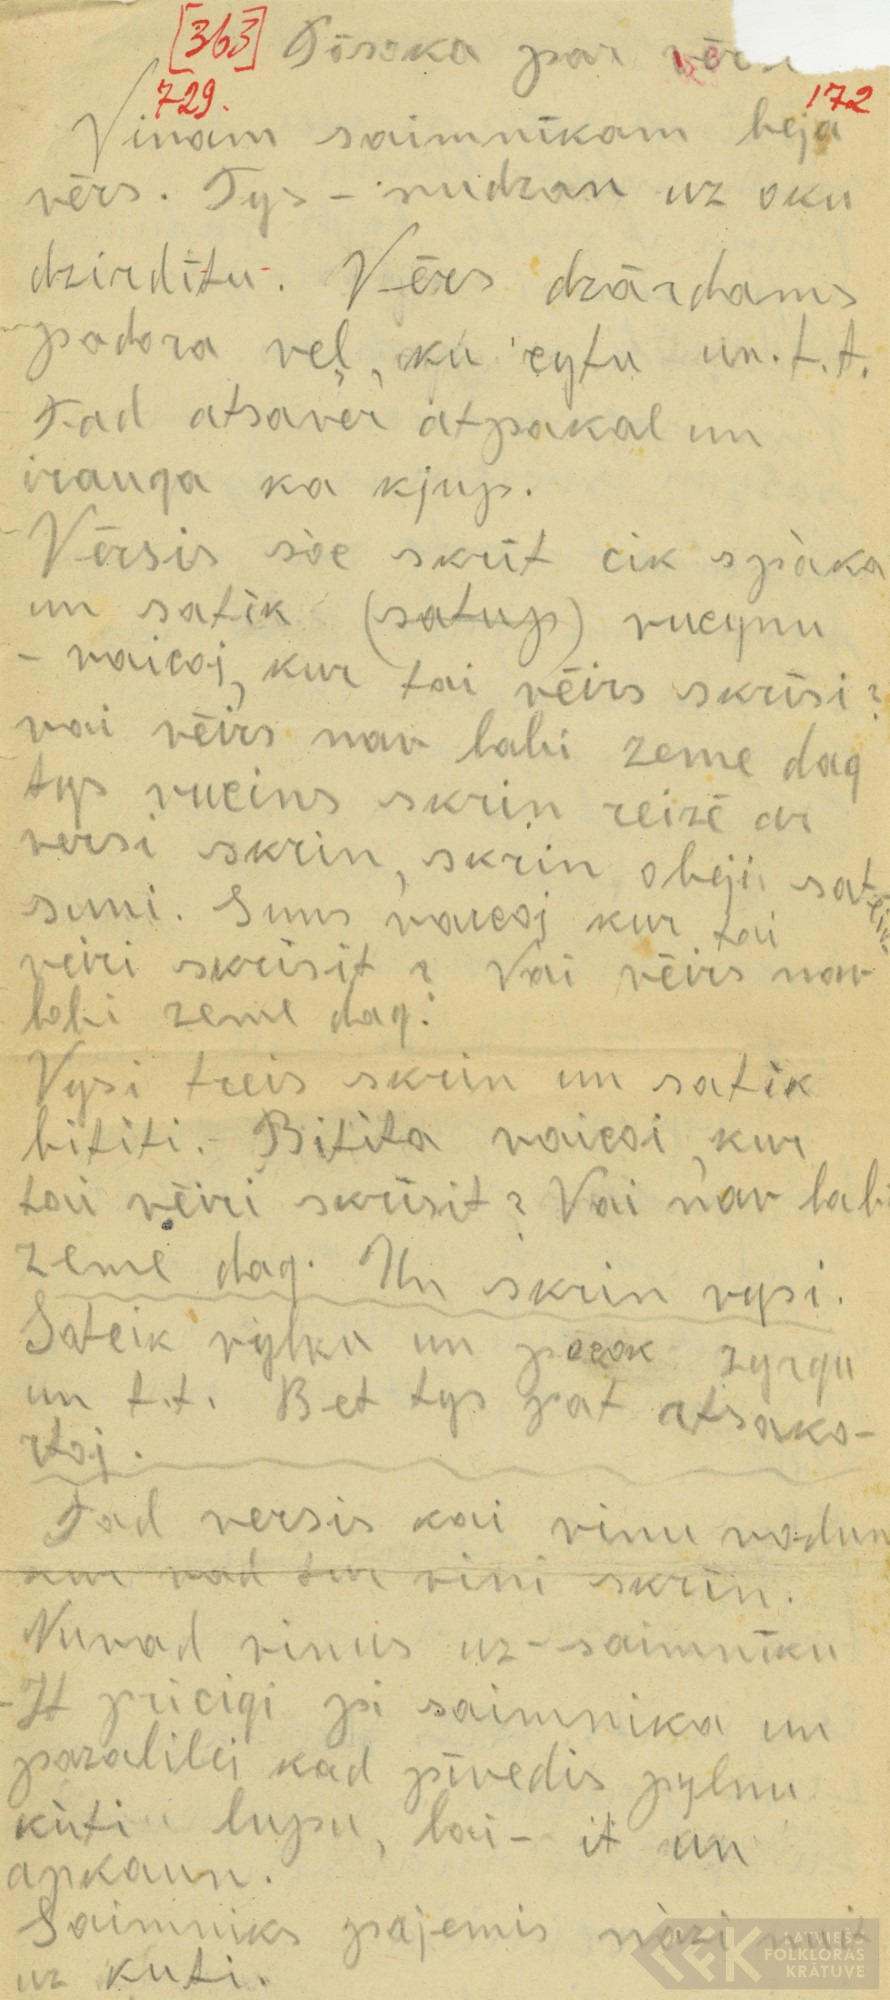 [363] Pōsoka par vēr
729. 172
Vinam saimnīkam beja
vērs. Tys - nudzan uz oku
dzirdītu. Vērs dzārdams
padora vel, ku eytu un.t.t.
Tad atsavēr atpakal un
irauga ka kjup.
Vērsis sòc skrīt cik spàka
un satik (satup) rucynu
- vaicoj, kur tai vēirs skrīsi?
vai vēirs nav labi zeme dag
tys rucins skrin reizē ar
versi skrin, skrin obeji satēik
suni. Suns vaicoj kur tai
vēiri skrīsit? Vai vēirs nav
lobi zeme dag?
Vysi treis skrin un satik
bititi. Bitita vaicoi, kur
tai vēiri skrīsit? Vai nav labi
zeme dag. Un skrin vysi.
Sateik vylku un pocok zyrgu
un t.t. Bet tys pat atsako-
rtoj.
Tad versis kai vinu vodun
kur vad tur vini skrīn.
Nuvad vinus uz saimnīku
- It pricigi pi saimnika un
pazalilei kad pīvedis pylnu
kùti lupu, lai - it un
apkaun.
Saimniks pajemis nàzi
uz kuti.
LATVIEŠU
FOLKLORAS
KRĀTUVE
LFK